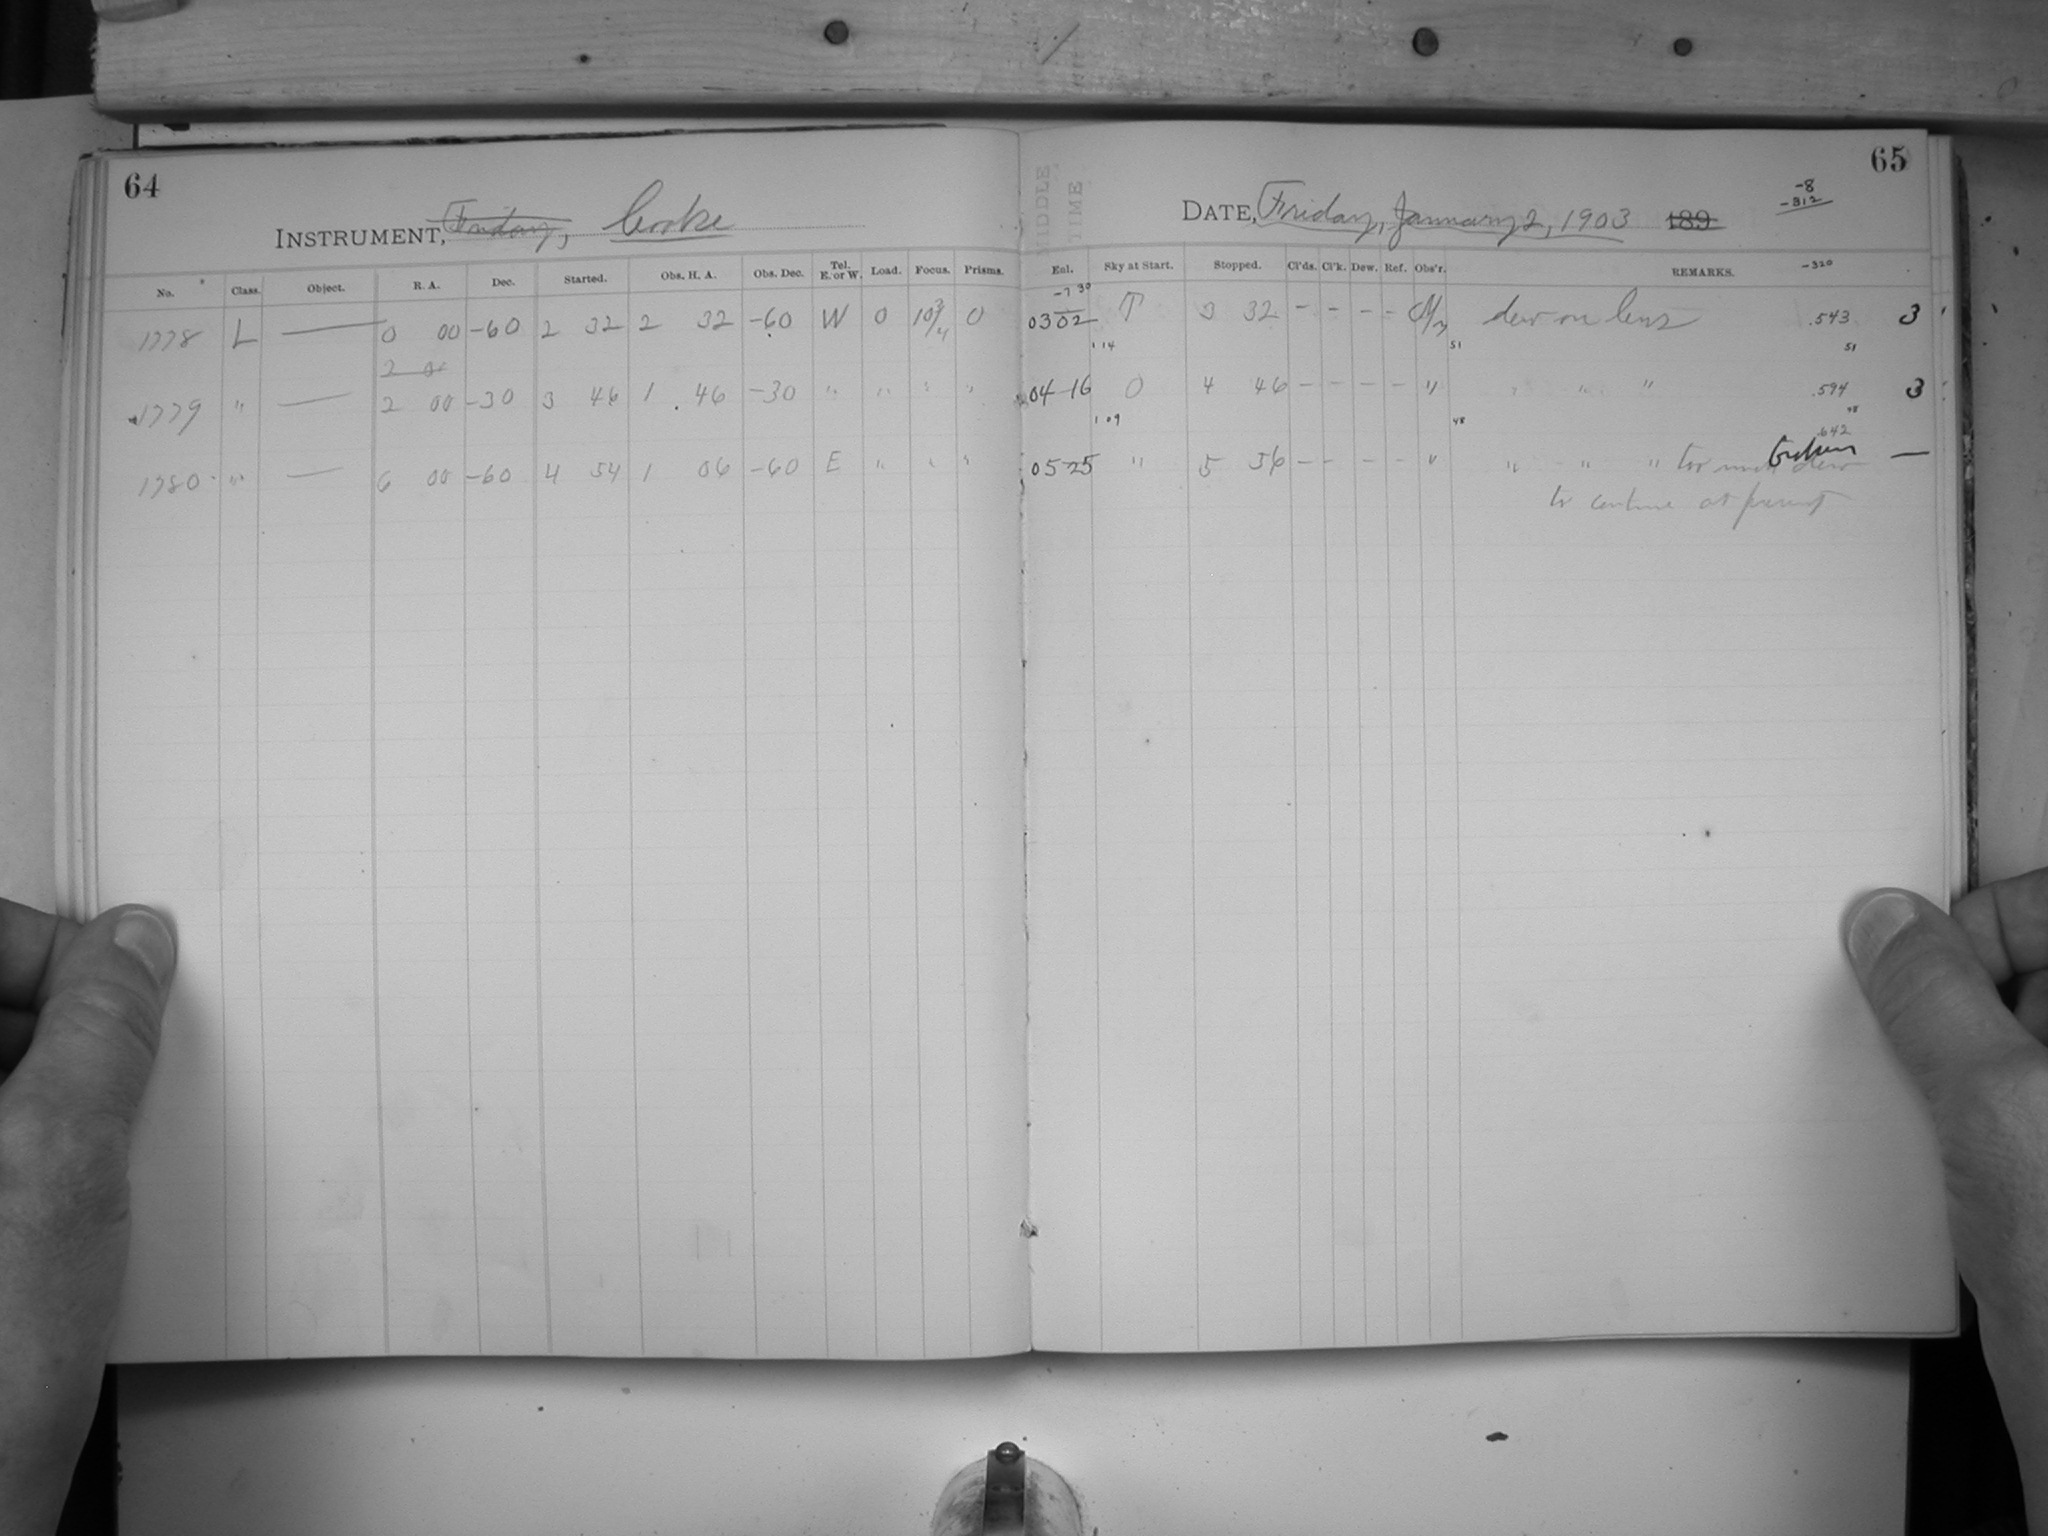 64
INSTRUMENT, Friday, Cooke
No. Class. Object. R. A. Dec. Started. Obs. H. A. Obs. Dec. Tel. E. or W. Load. Focus. Prisms.
1778 L — 0 00 -60 2 32 2 32 -60 W 0 10 3/4 0
2 00
1779 " — 2 00 -30 3 46 1 46 -30 " " " "
1780 " — 6 00 -60 4 54 1 06 -60 E " " "
MIDDLE
TIME
65
-8
-312
DATE, Friday, January 2, 1903 189
Exl. Sky at Start. Stopped. Cl'ds. Cl'k. Dew. Ref. Obs'r. REMARKS. -320
-7 30
03 02 T 3 32 - - - - dew on lens .543 3
1 14 51 51
04 16 0 4 46 - - - - " " " " .594 3
1 09 48 48
.642
05 25 " 5 56 - - - - " " " " too much dew Broken —
to continue at present